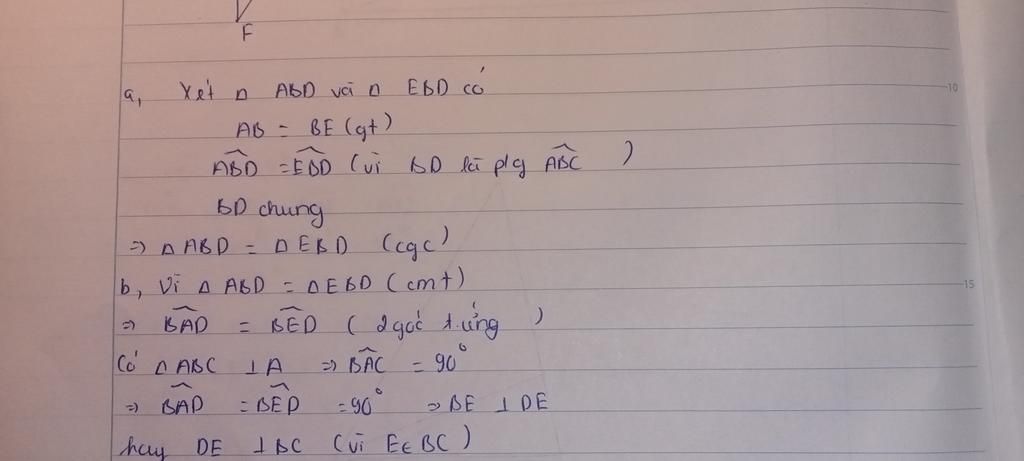 F
a, Xét △ ABD và △ EBD có
10
AB = BE (gt)
\widehat{ABD} = \widehat{EBD} (vì BD là p/g \widehat{ABC} )
BD chung
⇒ △ ABD = △ EBD (cgc)
b, Vì △ ABD = △ EBD (cmt)
15
⇒ \widehat{BAD} = \widehat{BED} ( 2 góc t.ứng )
Có △ ABC ⊥ A ⇒ \widehat{BAC} = 90°
⇒ \widehat{BAD} = \widehat{BED} = 90° ⇒ BE ⊥ DE
hay DE ⊥ BC (vì E∈ BC)